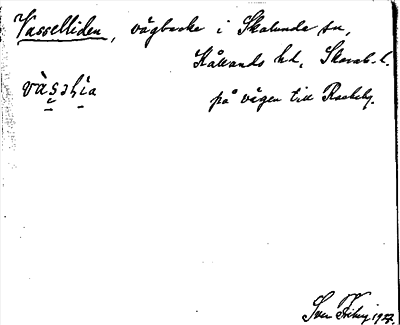 Vasselliden, vägbacke i Skalunda sn,
Kållands hd, Skarab. l.
vàsəlía på vägen till Rackeby.
Sven Ekberg 1927.